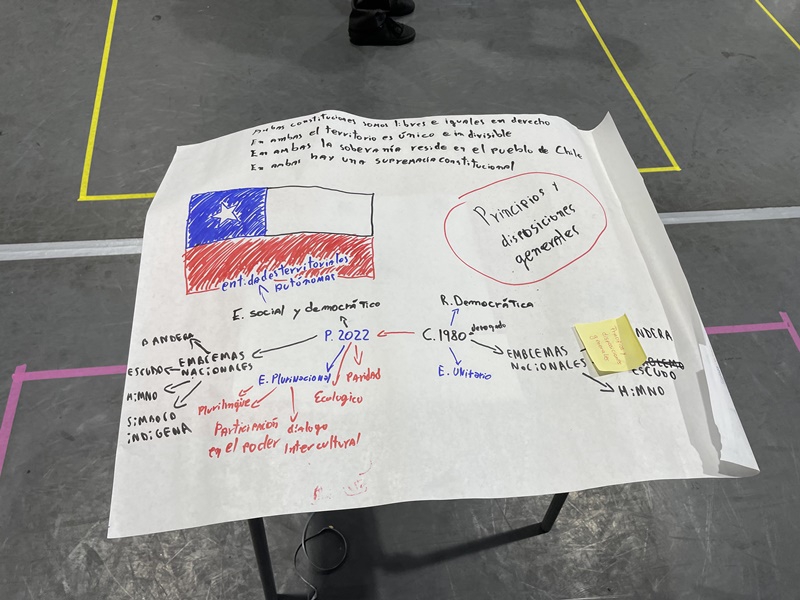 Ambas constituciones somos libres e iguales en derecho
En ambas el territorio es único e indivisible
En ambas la soberanía reside en el pueblo de Chile
En ambas hay una supremacía constitucional
Principios y
disposiciones
generales
entidades territoriales
autónomas
E. social y democrático
R. Democrática
P. 2022
C. 1980
derogado
BANDERA
ESCUDO
HiMNO
SiMBOLO
iNDiGENA
EMBLEMAS
NACiONALES
E. Plurinacional
Paridad
Ecologico
Plurilingüe
Participación
en el poder
dialogo
Intercultural
E. Unitario
EMBLEMAS
NaCiONALES
NDERA
ESCUDO
HiMNO